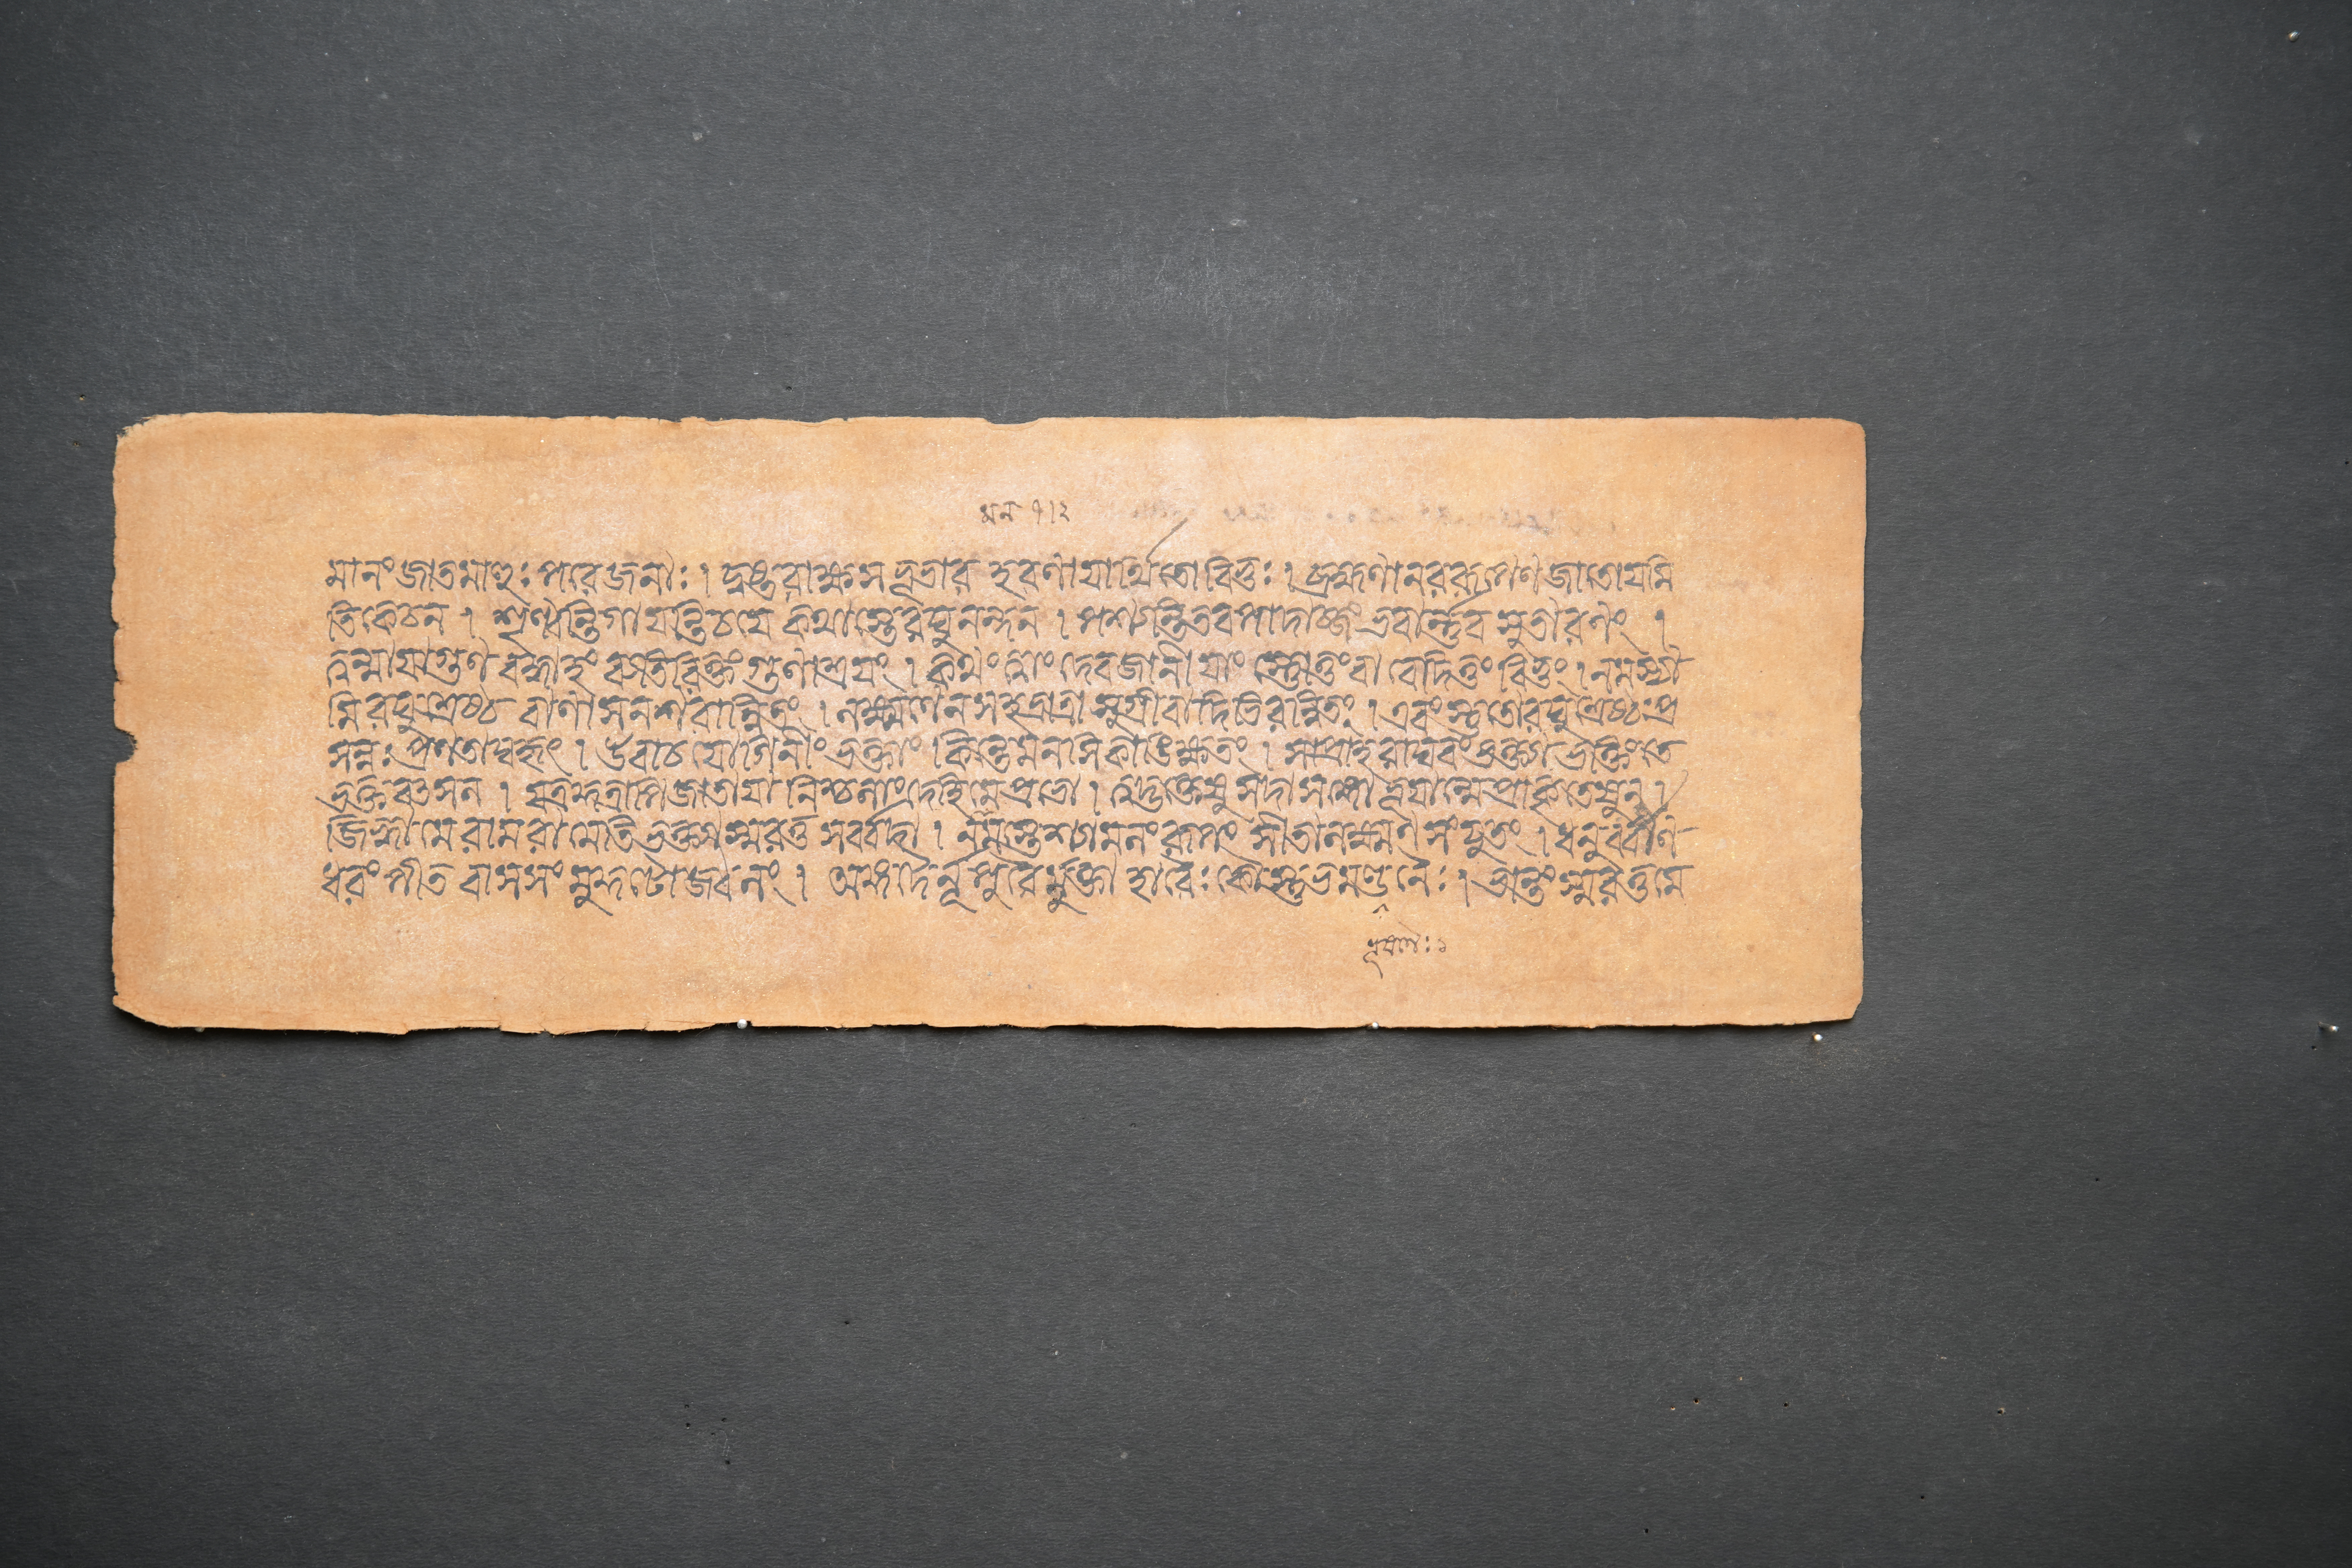 মানং জাতমাহুঃ পরে জনাঃ । দুষ্টরাক্ষস ভূভার হরণায়ার্থিতো বিভুঃ । ব্রহ্মণা নররূপেণ জাতো যমি
তি কেচন । শৃণ্বন্তি গায়ন্তি চ যে কথাস্তে রঘুনন্দন । পশ্যন্তি তব পাদাব্জং ভবার্ন্নব সুতারণং ।
ত্বন্মায়াগুণ বদ্ধাহং ব্যতিরিক্তং গুণাশ্রয়ং । কথং ত্বাং দেব জানীয়াং স্তোতুং বা বেদিতুং বিভুং । নমস্যা
মি রঘুশ্রেষ্ঠ বাণাসনশরান্বিতং । লক্ষ্মণেন সহ ভ্রাত্রা সুগ্রীবাদিভিরন্বিতং । এবং স্তুতো রঘুশ্রেষ্ঠঃ প্র
সন্নঃ প্রণতাঘহৃৎ । উবাচ যোগিনীং ভক্তাং কিন্তে মনসি কাঙ্ক্ষিতং । সা প্রাহ রাঘবং ভক্ত্যা ভক্তিং তে
ভক্তবৎসল । যত্র কুত্রাপি জাতায়া নিশ্চলাং দেহি মে প্রভো । ত্বদ্ভক্তেষু সদা সঙ্গো ভূয়ান্মে প্রাকৃতেষু ন ।
জিহ্বা মে রাম রামেতি ভক্ত্যা স্মরতু সর্ব্বদা । মমাস্তু শ্যামলং রূপং সীতালক্ষ্মণ সংযুতং । ধনুর্ব্বাণ
ধরং পীত বাসসং মুকুটোজ্বলং । অঙ্গদৈর্নূপুরৈর্মুক্তা হারৈঃ কৌস্তুভকুণ্ডলৈঃ । ভান্তং স্মরতু মে